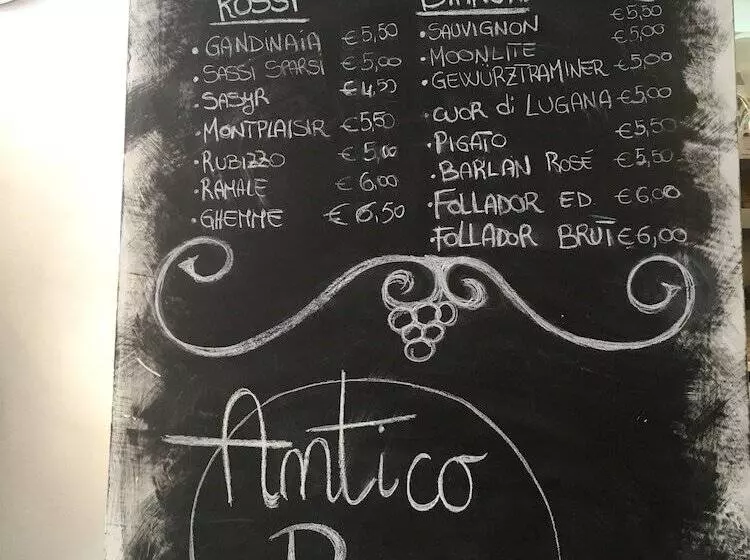 ROSSI
• GANDINAIA €5,50
• SASSI SPARSI €5,00
• SASYR €4,50
• MONTPLAISIR €5,50
• RUBIZZO €5,00
• RAMALE €6,00
• GHEMME €6,50
BIANCHI
• SAUVIGNON €5,50
• MOONLITE €5,00
• GEWÜRZTRAMINER €5,00
• CUOR di LUGANA €5,00
• PIGATO €5,50
• BARLAN ROSÉ €5,50
• FOLLADOR ED. €6,00
• FOLLADOR BRUT €6,00
Antico